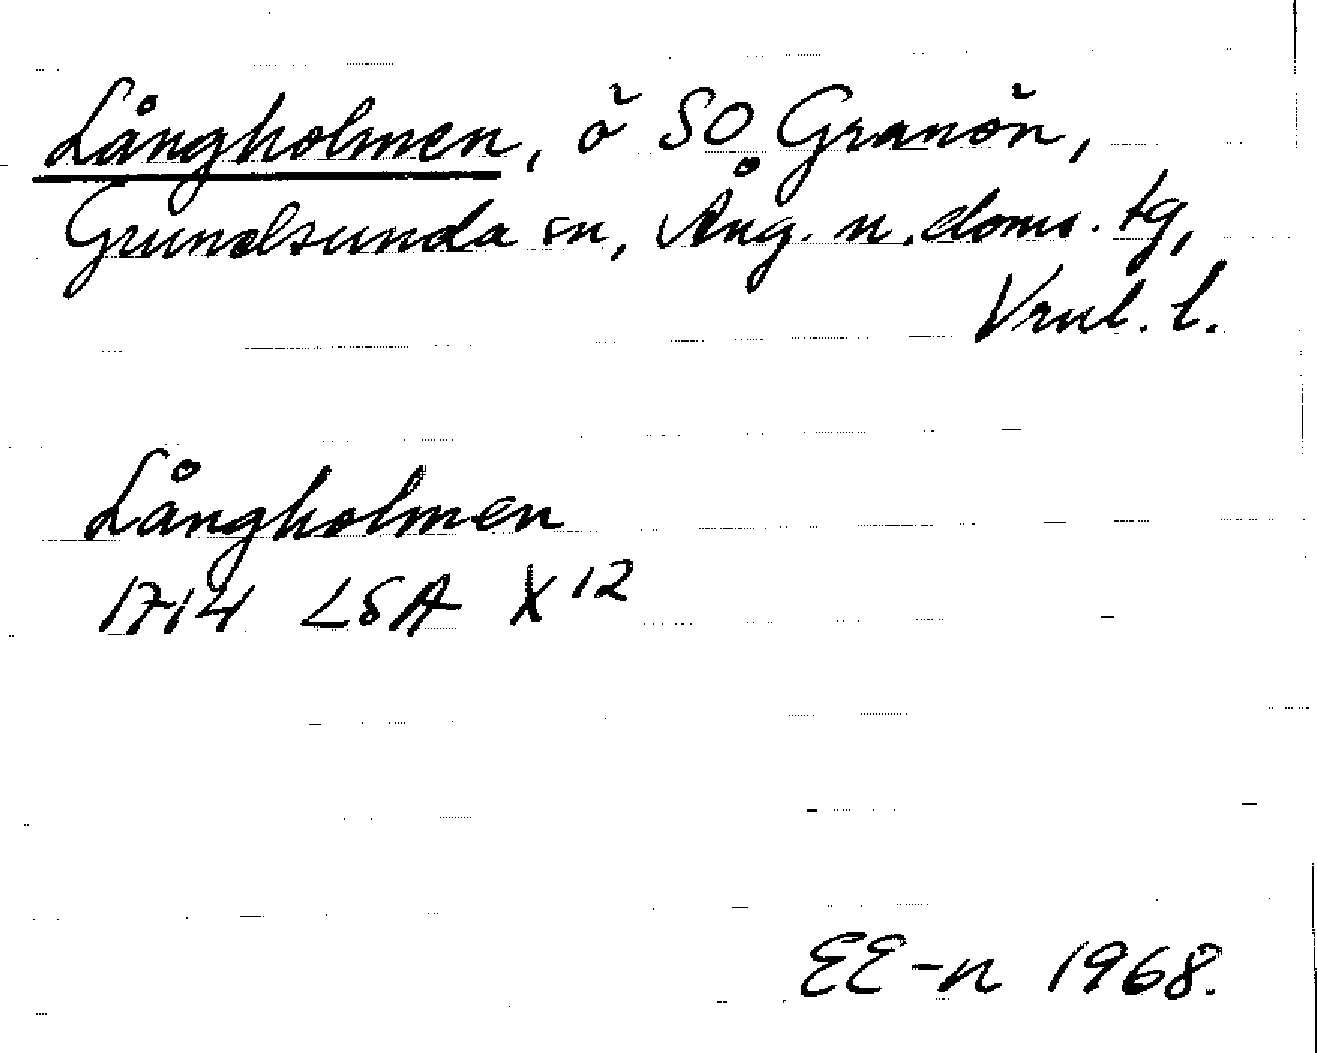 Långholmen, ö SO Granön,
Grundsunda sn, Ång. n. doms. tg,
Vnl. l.
Långholmen
1714 LSA X 12
EE-n 1968.